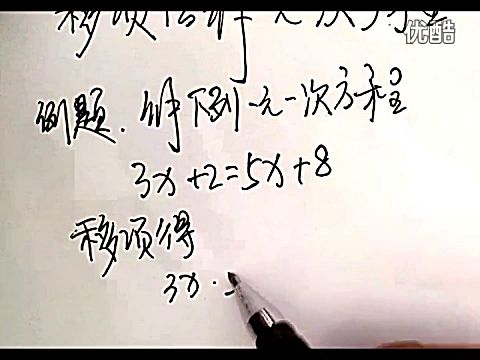 移项法解一元一次方程
优酷
例题.解下列一元一次方程
3x+2=5x+8
移项得
3x